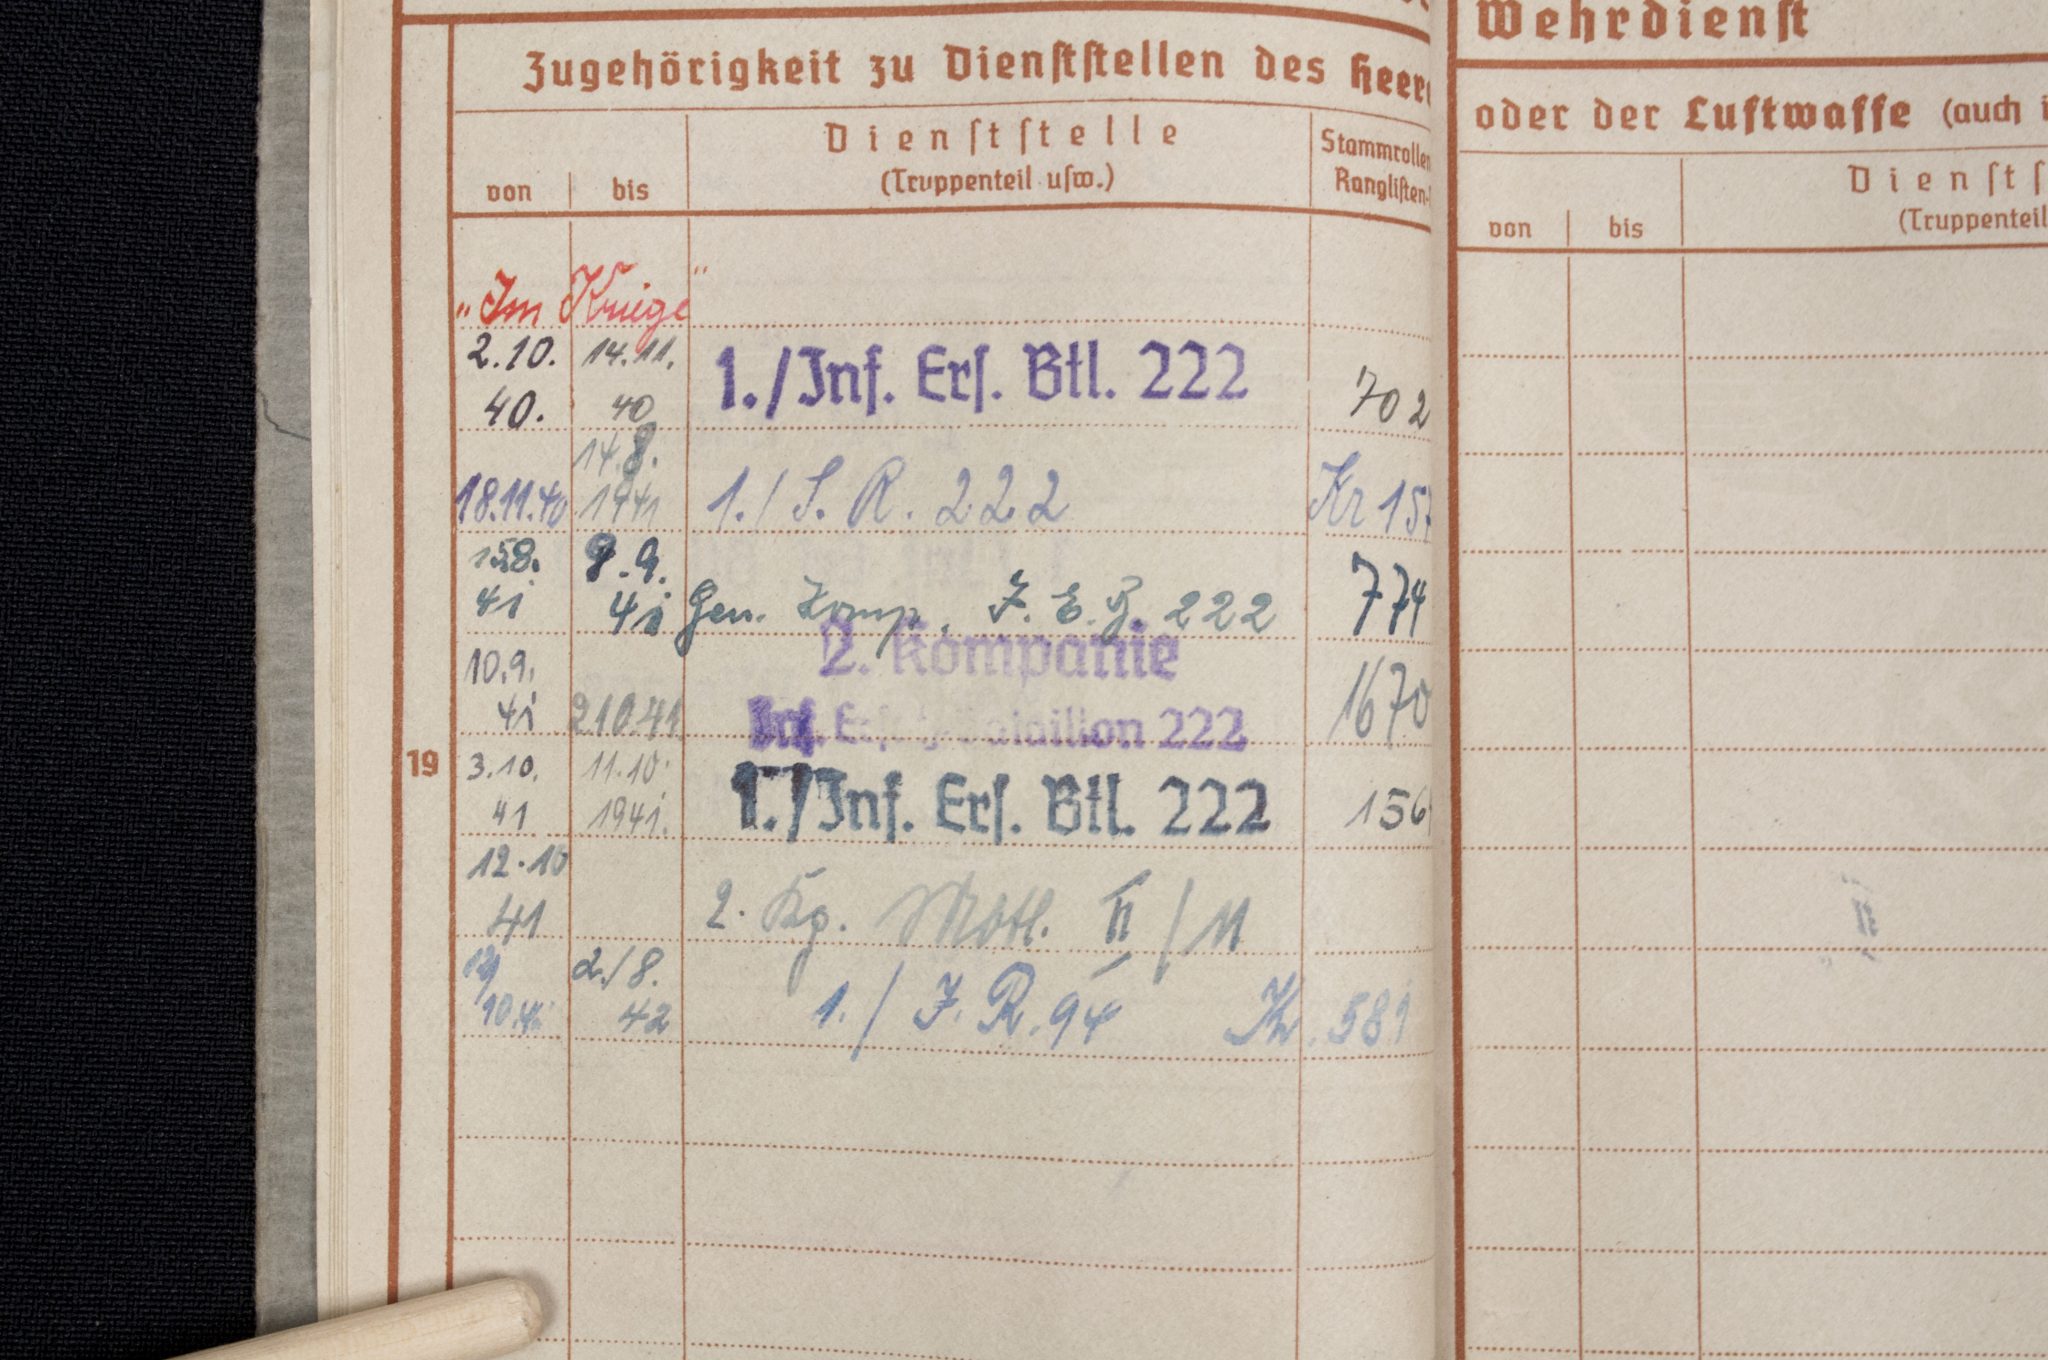 Wehrdienst
Zugehörigkeit zu Dienststellen des
oder der Luftwaffe (auch
Dienststelle
(Truppenteil usw.)
von
bis
von
bis
(Truppenteil
„Im Kriege“
2.10. 14.11. 1./Inf. Ers. Btl. 222
40. 40 702
14.8.
18.11.40 1941 1./ S. R. 222 Kr 15
15.8. 8.9. 774
41 41 Gen. Komp. J. E. B. 222
10.9. 2. Kompanie 1670
41 2.10.41 Inf. Ersatz-Bataillon 222
19 3.10. 11.10. 1./Inf. Ers. Btl. 222
41 1941. 156
12.10
41 2. Kp. II /
2./8.
42 1./ J. R. 94 Kr. 589